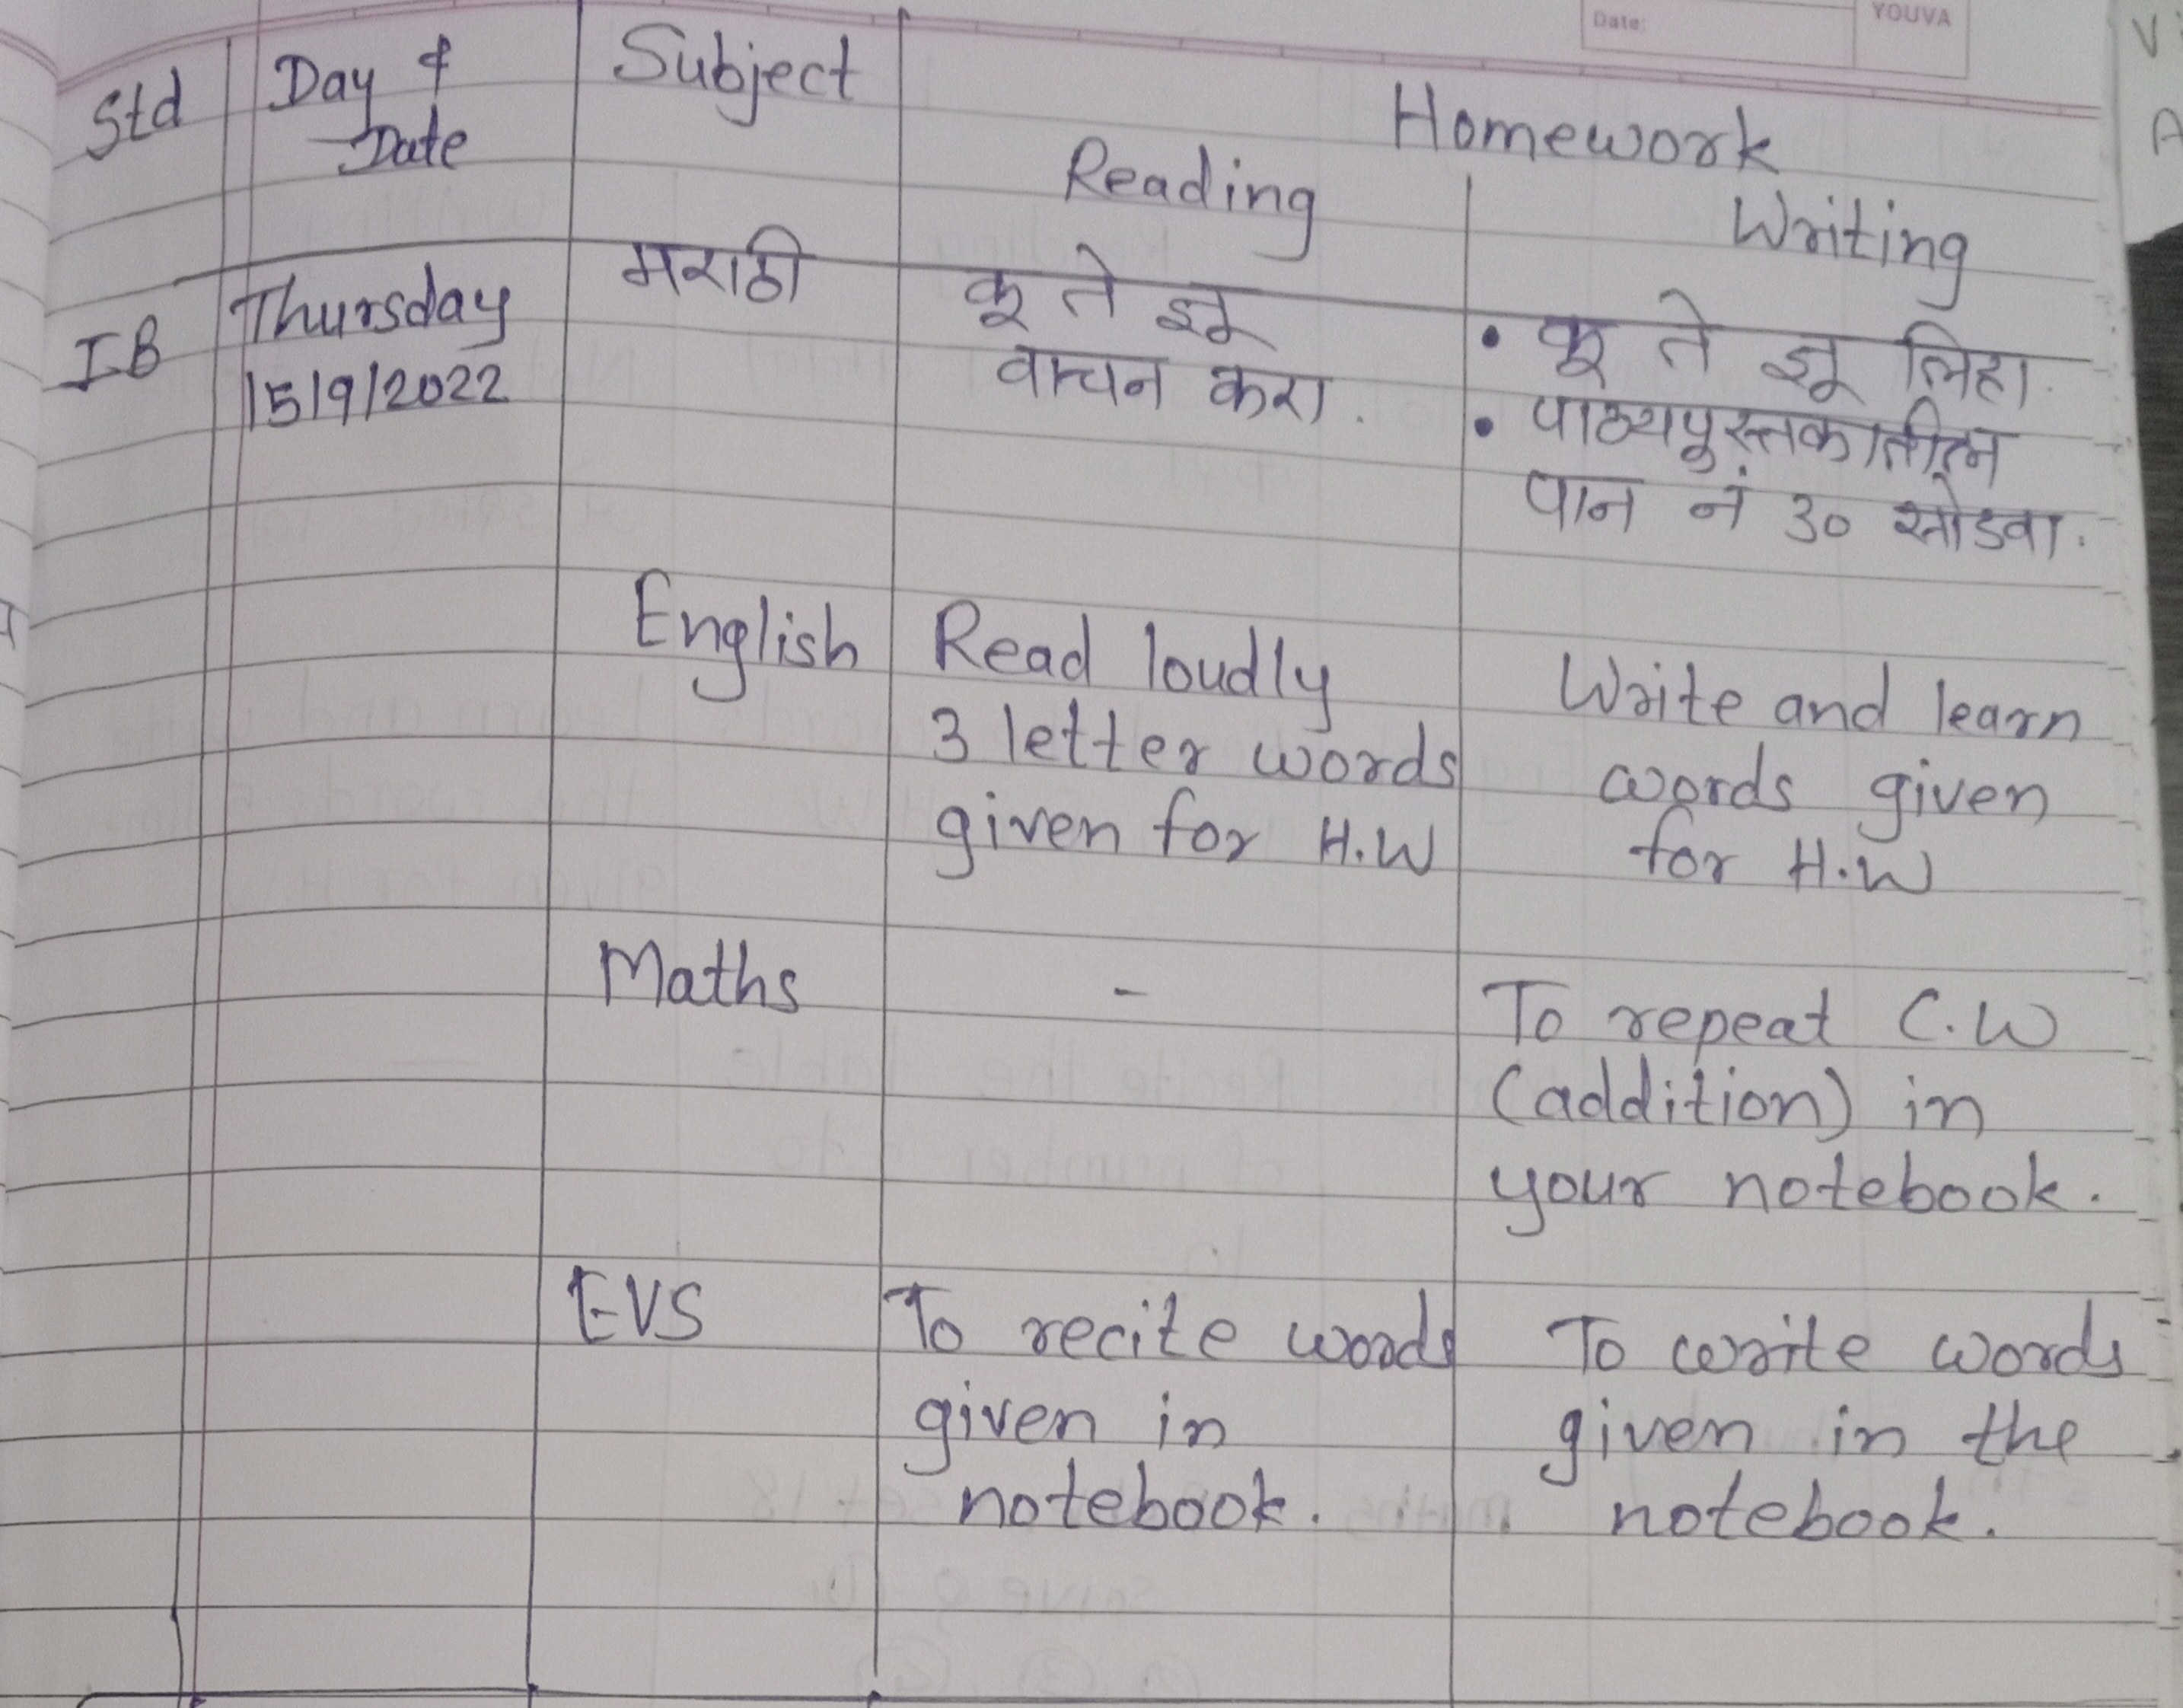 Date:
YOUVA
Std
Day &
Date
Subject
Homework
Reading
Writing
IB
Thursday
15/9/2022
मराठी
कू ते झू
वाचन करा.
• कू ते झू लिहा.
• पाठ्यपुस्तकातील
पान नं 30 सोडवा.
English
Read loudly
3 letter words
given for H.W
Write and learn
words given
for H.W
Maths
-
To repeat C.W
(addition) in
your notebook.
EVS
To recite words
given in
notebook.
To write words
given in the
notebook.